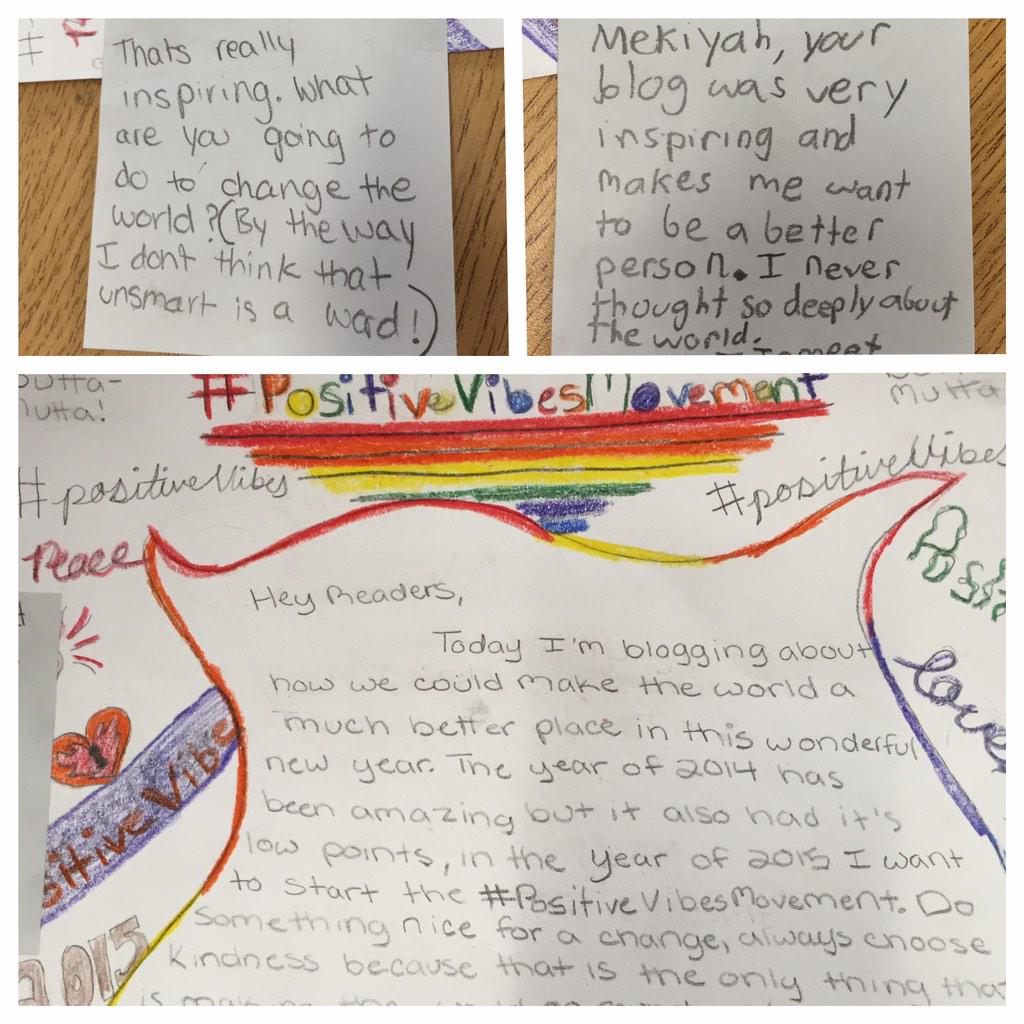 Thats really
inspiring. What
are you going to
do to change the
world? (By the way
I dont think that
unsmart is a word!)
Mekiyah, your
blog was very
inspiring and
makes me want
to be a better
person. I never
thought so deeply about
the world.
#PositiveVibesMovement
Mutta
#positiveVibes
#positiveVibes
Peace
Hey Readers,
Today I'm blogging about
how we could make the world a
much better place in this wonderful
new year. The year of 2014 has
been amazing but it also had it's
low points, in the year of 2015 I want
to start the #PositiveVibesMovement. Do
something nice for a change, always choose
kindness because that is the only thing tha
Love
2015